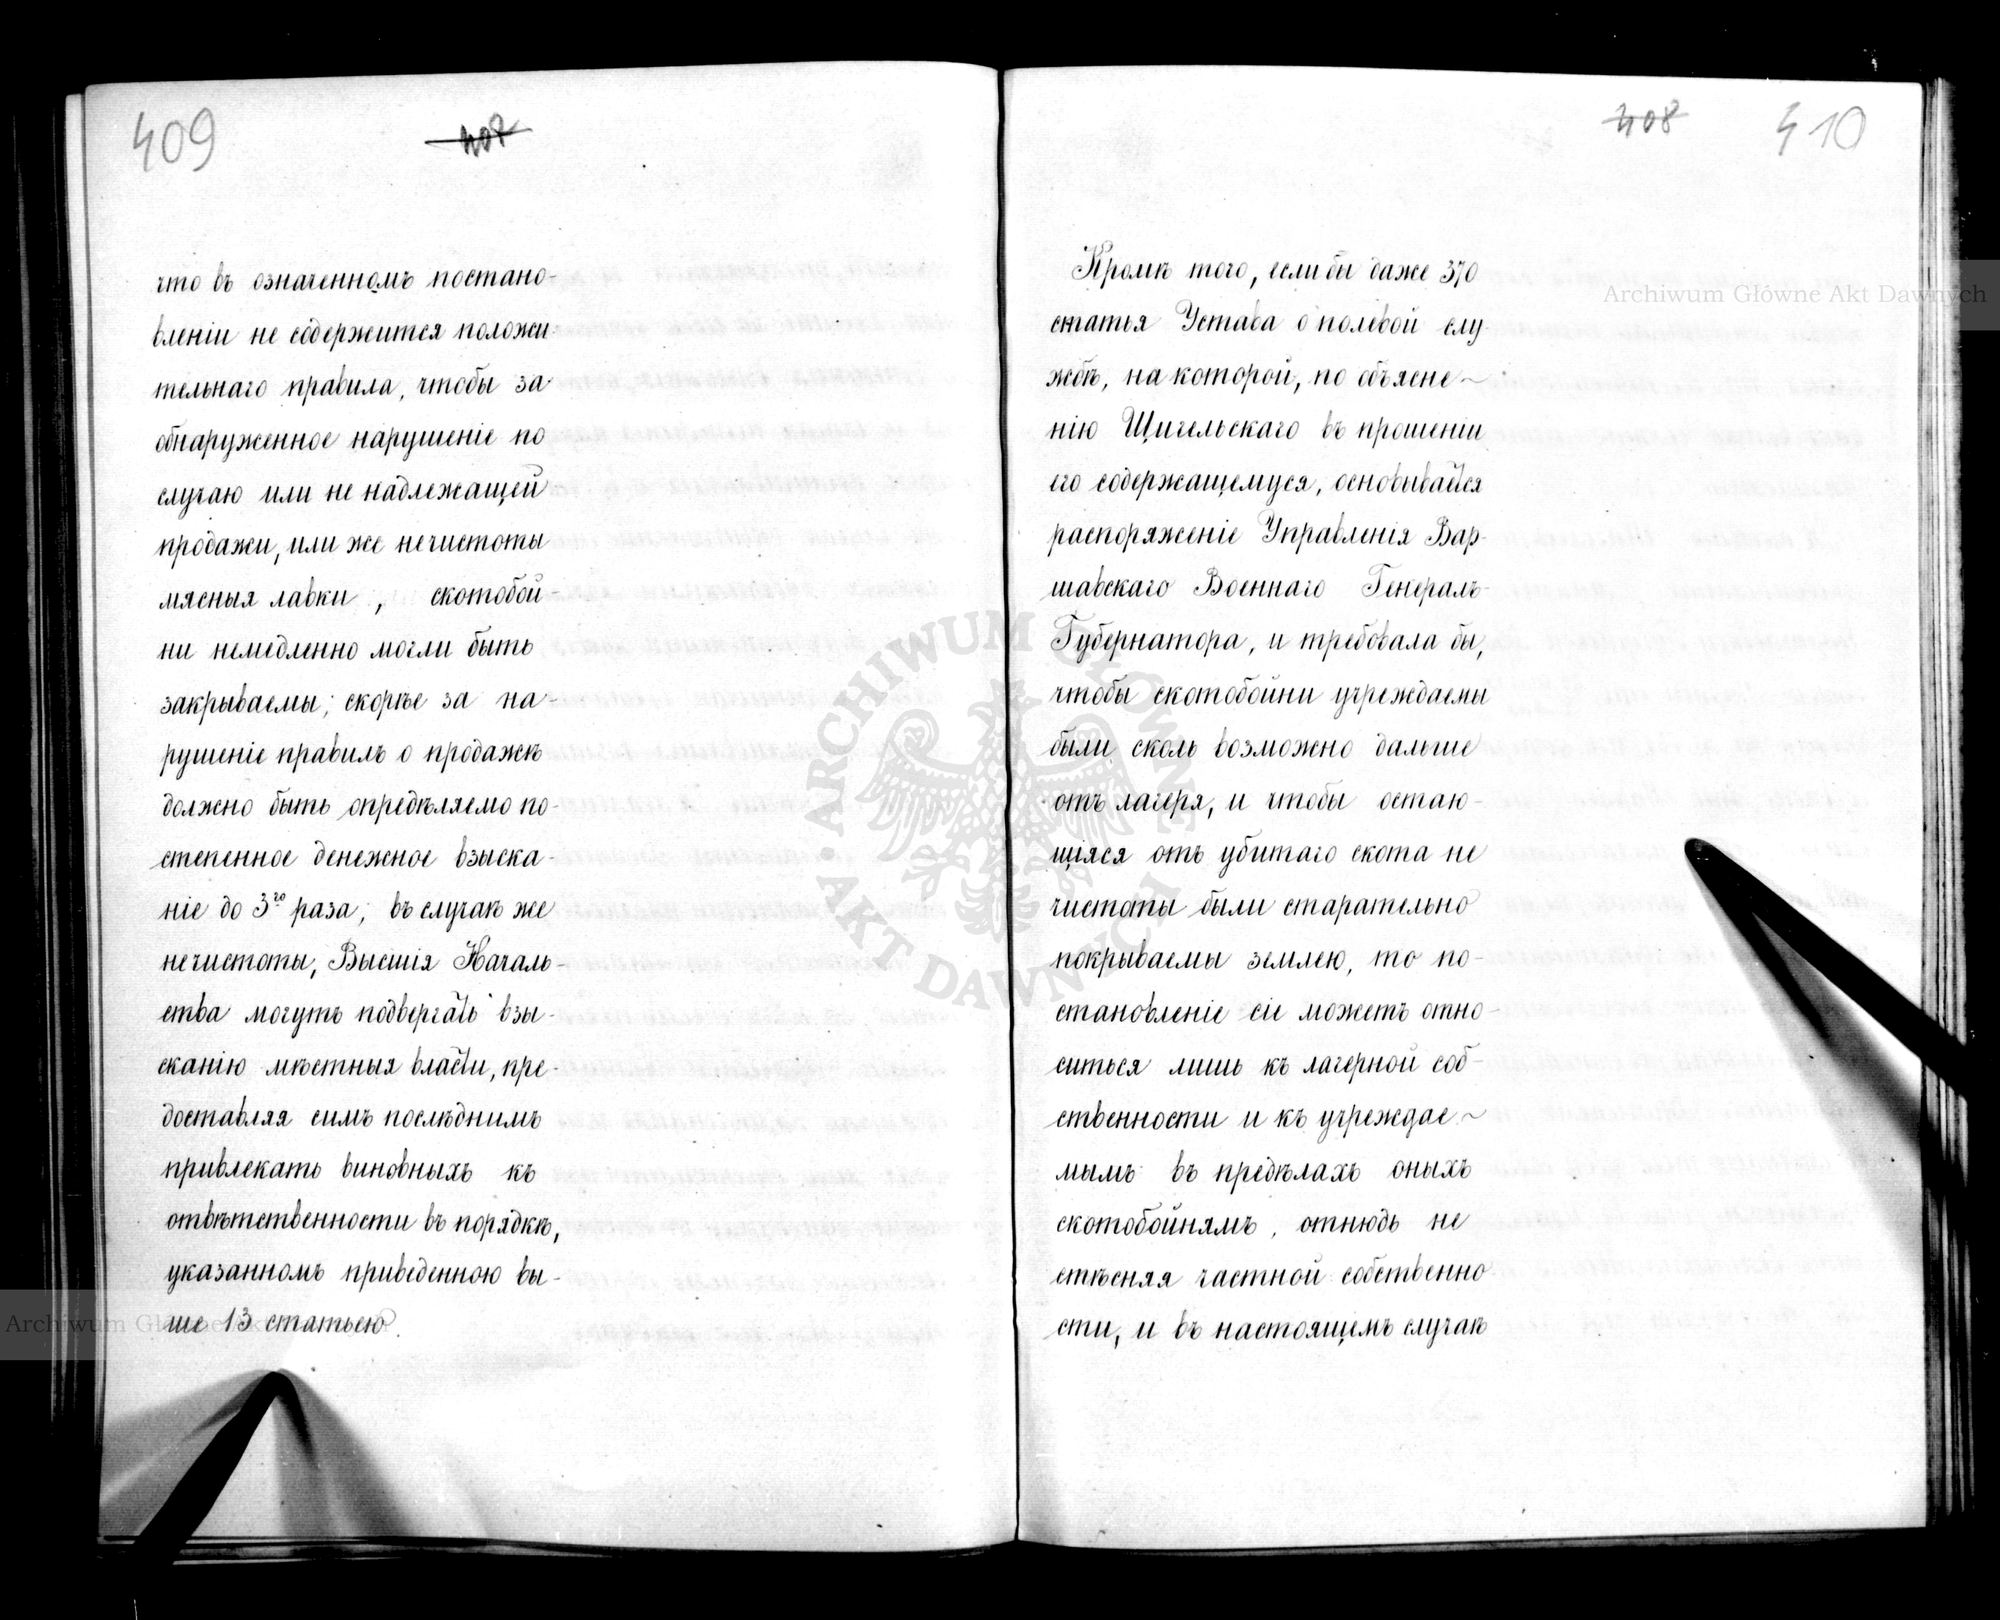 409
407
что въ означенномъ постано-
вленіи не содержится положи-
тельнаго правила, чтобы за
обнаруженное нарушеніе по
случаю или не надлежащей
продажи, или же нечистоты
мясныя лавки, скотобой-
ни немедленно могли быть
закрываемы; скорѣе за на-
рушеніе правилъ о продажѣ
должно быть опредѣляемо по-
степенное денежное взыска-
ніе до 3го раза; въ случаѣ же
нечистоты, Высшія Началь-
ства могутъ подвергать взы-
сканію мѣстныя власти, пре-
доставляя симъ послѣднимъ
привлекать виновныхъ къ
отвѣтственности въ порядкѣ,
указанномъ приведенною вы-
ше 13 статьею.
408
410
Кромѣ того, если бы даже 370
статья Устава о полевой слу-
жбѣ, на которой, по объясне-
нію Щигельскаго въ прошеніи
его содержащемуся, основывайся
распоряженіе Управленія Вар-
шавскаго Военнаго Генералъ-
Губернатора, и требовала бы,
чтобы скотобойни учреждаемы
были сколь возможно дальше
отъ лагеря, и чтобы остаю-
щіяся отъ убитаго скота не
чистоты были старательно
покрываемы землею, то по-
становленіе сіе можетъ отно-
ситься лишь къ лагерной соб-
ственности и къ учреждае-
мымъ въ предѣлахъ оныхъ
скотобойнямъ, отнюдь не
стѣсняя частной собственно
сти, и въ настоящемъ случаѣ
Archiwum Główne Akt Dawnych
ARCHIWUM GŁÓWNE AKT DAWNYCH